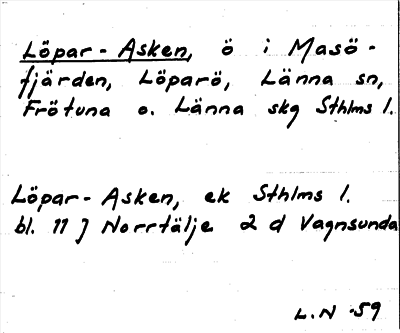 Löpar-Asken, ö i Masö-
fjärden, Löparö, Länna sn,
Frötuna o. Länna skg Sthlms l.
Löpar-Asken, ek Sthlms l.
bl. 11 J Norrtälje 2 d Vagnsunda
L.N -59